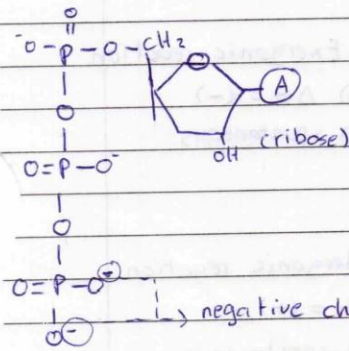 O
⁻O-P-O-CH₂
O
A
O
OH (ribose)
O=P-O⁻
O
O=P-O⊖
negative ch
O⊖